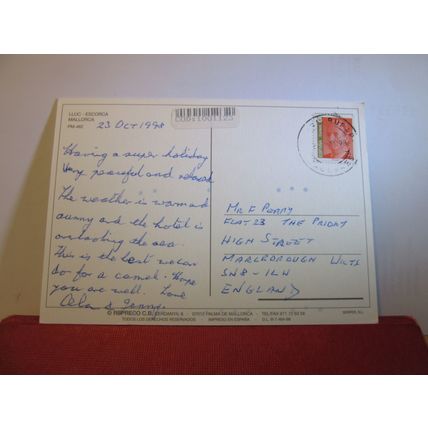 LLUC - ESCORCA
MALLORCA
PM-465
23 OCT 1998
Having a super holiday
Very peaceful and relaxed
The weather is warm and
sunny and the hotel is
overlooking the sea.
This is the best we can
do for a camel. Hope
you are well. Love
MR F PERRY
FLAT 23 THE PRIORY
HIGH STREET
MARLBOROUGH WILTS
SN8-1LW
ENGLAND
07012 PALMA DE MALLORCA
TODOS LOS DERECHOS RESERVADOS - IMPRESO EN ESPAÑA